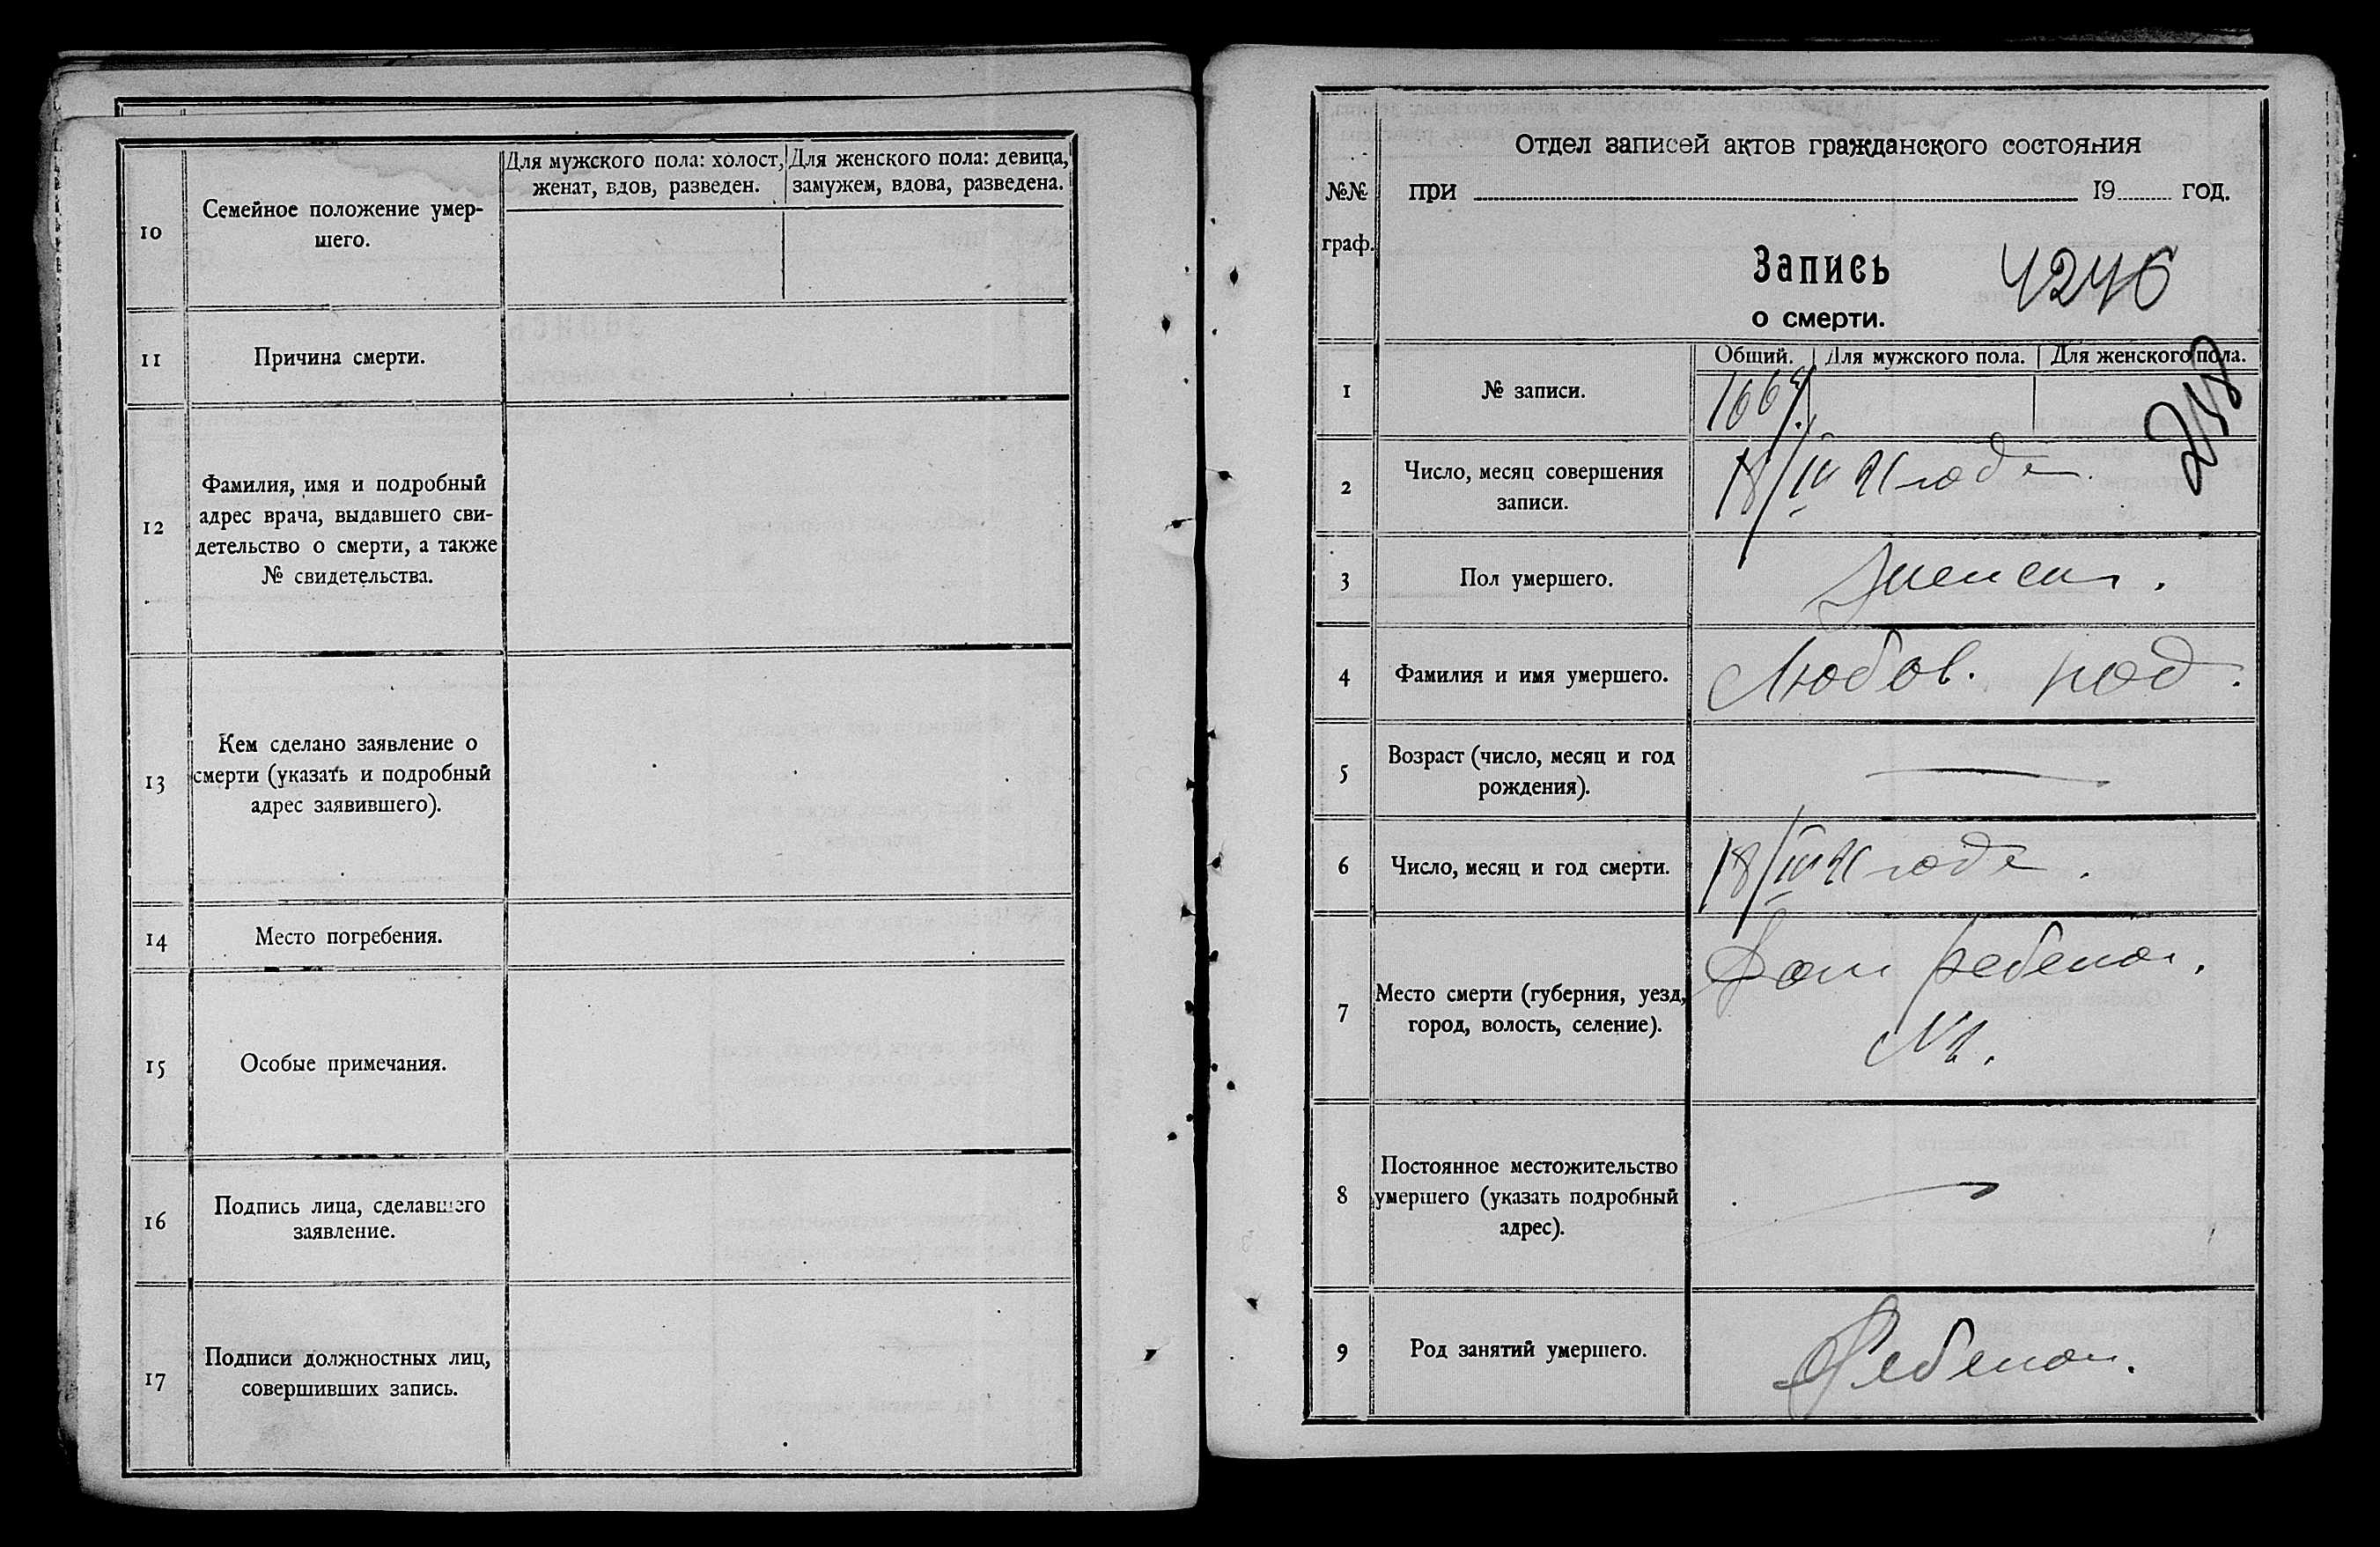 10
Семейное положение умер-
шего.
Для мужского пола: холост,
женат, вдов, разведен.
Для женского пола: девица,
замужем, вдова, разведена.
11
Причина смерти.
12
Фамилия, имя и подробный
адрес врача, выдавшего сви-
детельство о смерти, а также
№ свидетельства.
13
Кем сделано заявление о
смерти (указать и подробный
адрес заявившего).
14
Место погребения.
15
Особые примечания.
16
Подпись лица, сделавшего
заявление.
17
Подписи должностных лиц,
совершивших запись.
№№
граф.
Отдел записей актов гражданского состояния
при 19 год.
Запись 4246
о смерти.
Общий. Для мужского пола. Для женского пола.
1
№ записи.
2
Число, месяц совершения
записи.
18/III 21 года.
3
Пол умершего.
Женск.
4
Фамилия и имя умершего.
Любов.
5
Возраст (число, месяц и год
рождения).
6
Число, месяц и год смерти.
18/III 21 года.
7
Место смерти (губерния, уезд,
город, волость, селение).
Дом ребенк.
8
Постоянное местожительство
умершего (указать подробный
адрес).
9
Род занятий умершего.
Ребенок.